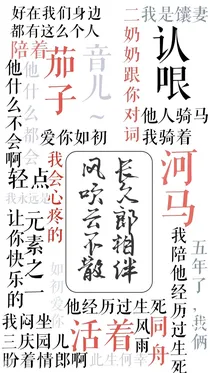 好在我们身边
都有这么个人
我是馕妻
二奶奶跟你对词
认哏
陪着
茄子
音儿~
他什么都会
他什么不会啊
爱你如初
他人骑马
我骑着
河马
我会心疼的
轻点
我永远是
元素之一
让你快乐的
长久郎相伴
风吹云不散
五年了，我俩
我陪他经历过生死
如初爱你
他经历过生死
我闷坐
三庆园儿
盼着情郎啊
活着
风雨
同舟
此生何幸